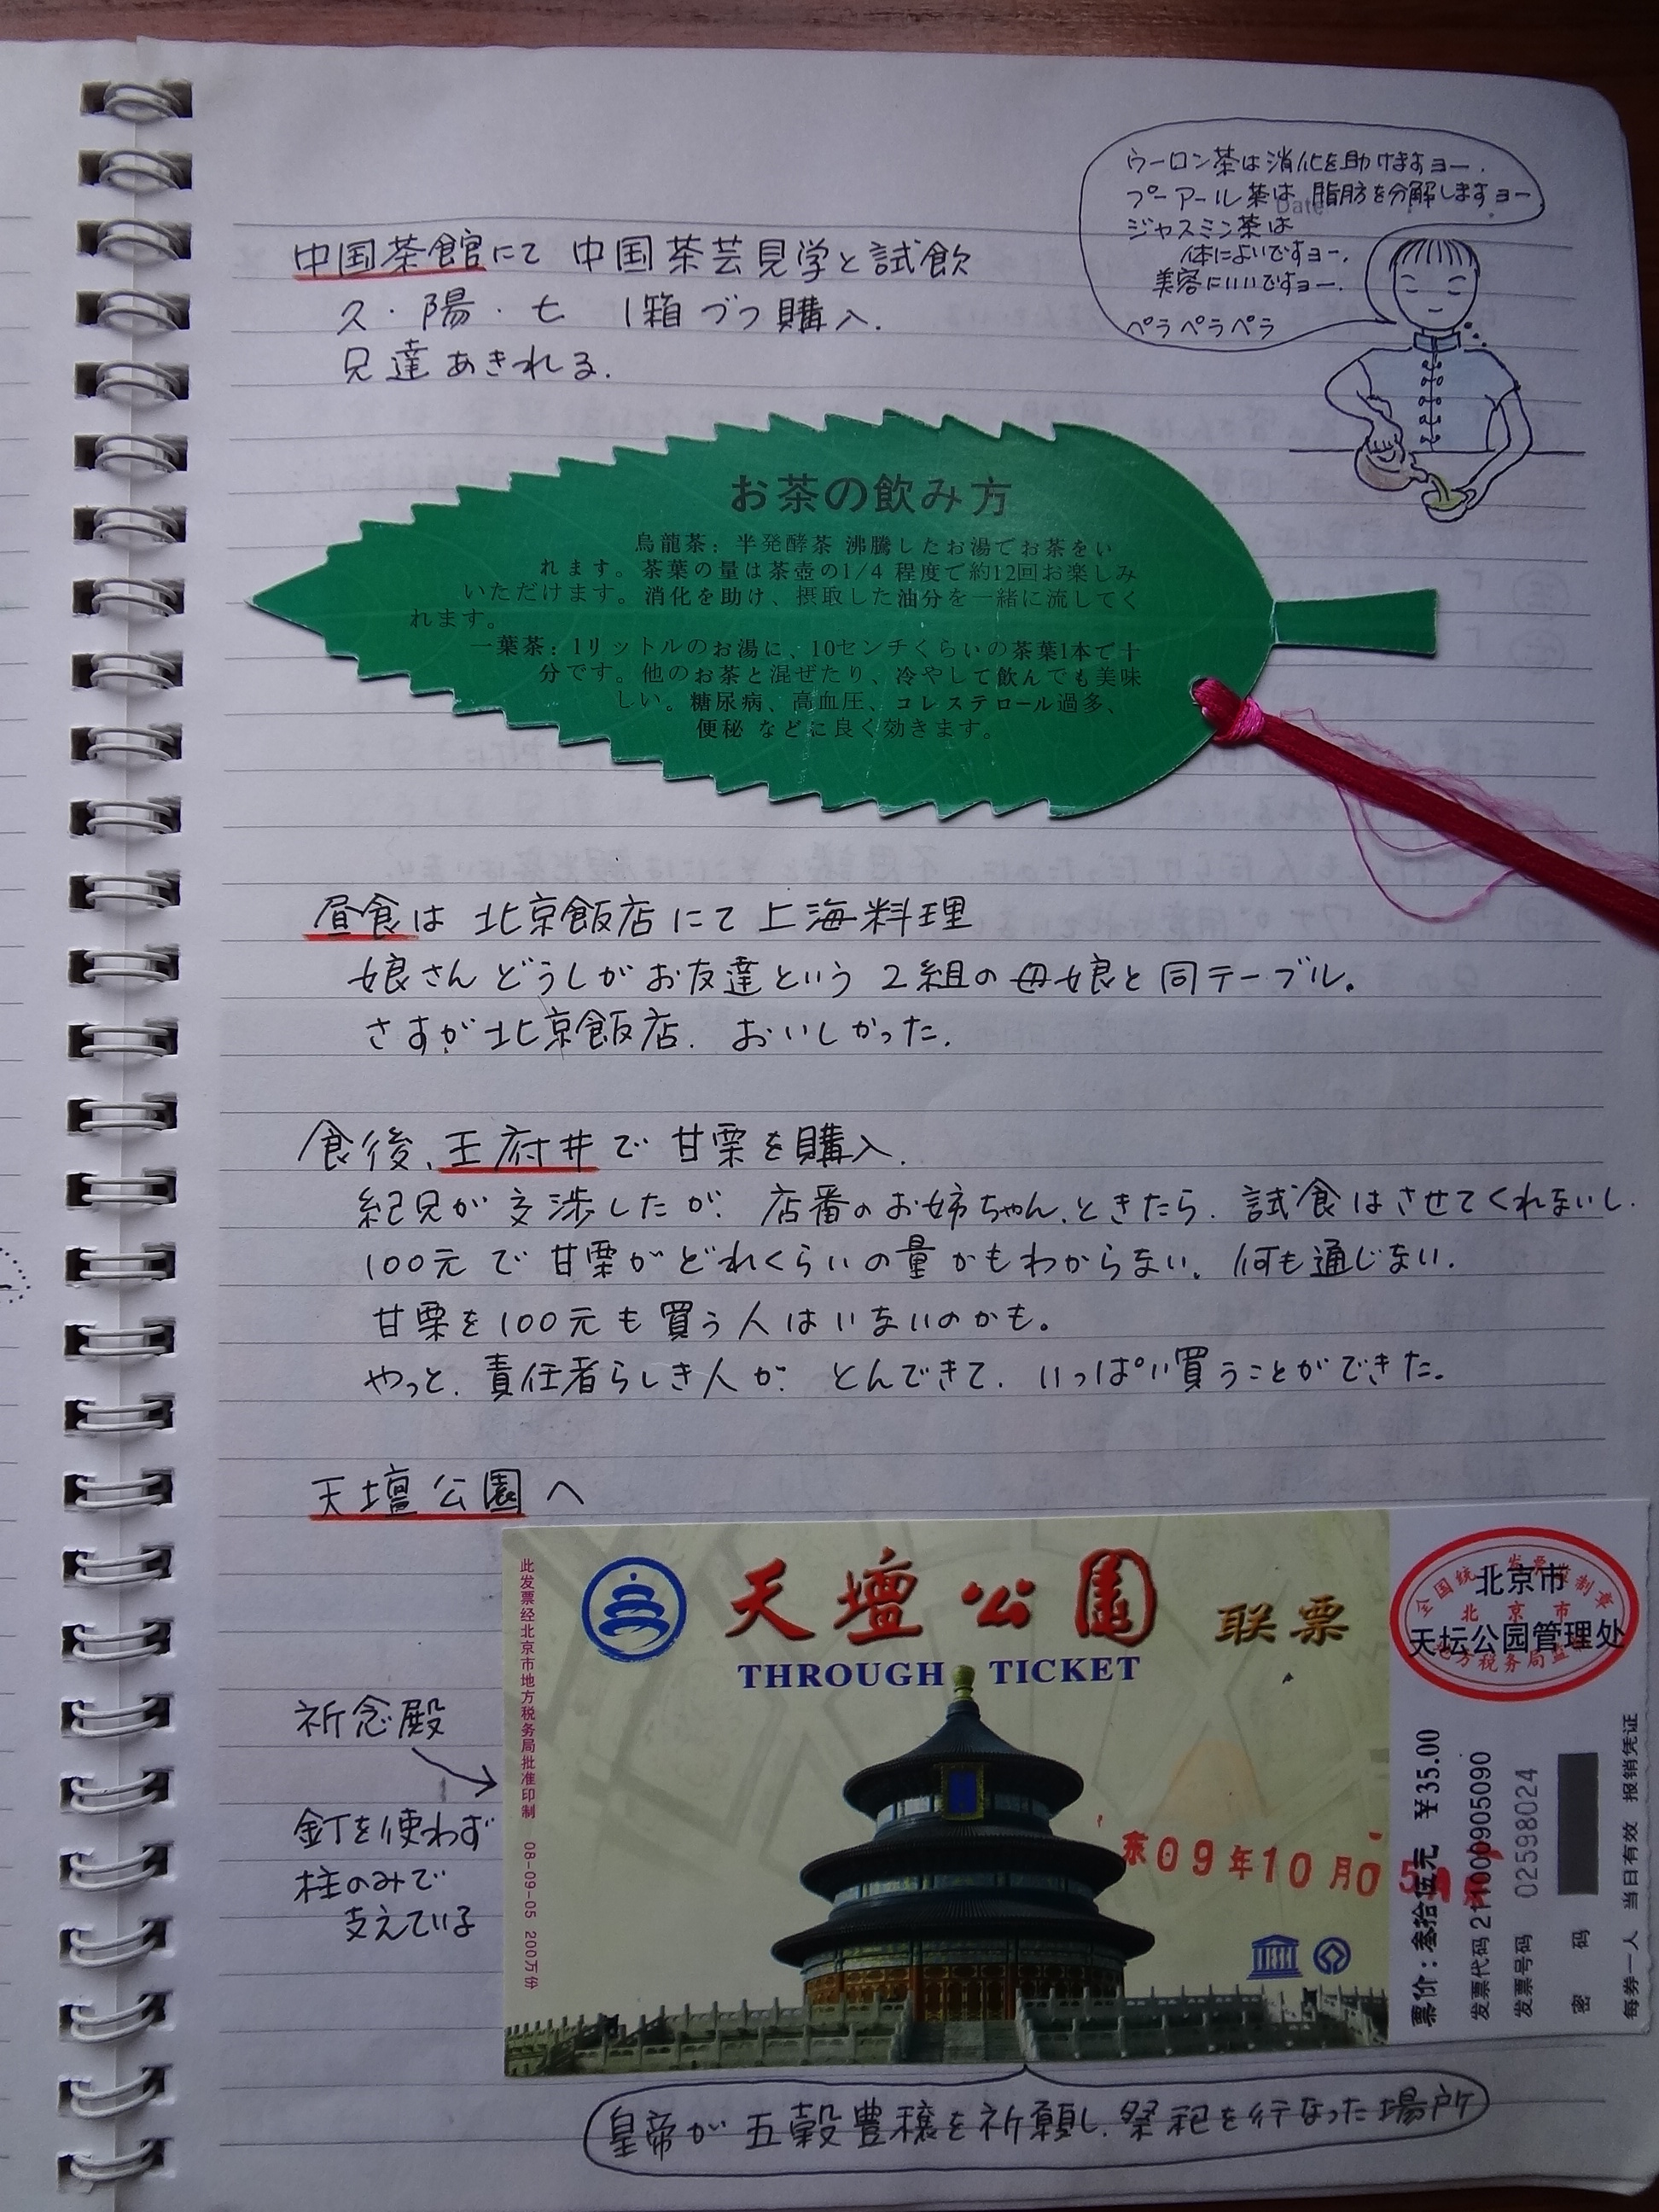 ウーロン茶は消化を助けますョー.
プーアール茶は 脂肪を分解しますョー
Date
ジャスミン茶は
体によいですョー.
美容にいいですョー.
ペラペラペラ
中国茶館にて 中国茶芸見学と試飲
久・陽・七 1箱づつ購入.
兄達あきれる.
お茶の飲み方
烏龍茶: 半発酵茶 沸騰したお湯でお茶をい
れます。茶葉の量は茶壺の1/4 程度で約12回お楽しみ
いただけます。消化を助け、摂取した油分を一緒に流してく
れます。
一葉茶: 1リットルのお湯に、10センチくらいの茶葉1本で十
分です。他のお茶と混ぜたり、冷やして飲んでも美味
しい。糖尿病、高血圧、コレステロール過多、
便秘 などに良く効きます。
昼食は 北京飯店にて上海料理
娘さんどうしがお友達という 2組の母娘と同テーブル。
さすが北京飯店. おいしかった.
食後、王府井で 甘栗を購入.
紀兄が交渉したが. 店番のお姉ちゃん、ときたら. 試食はさせてくれないし.
100元で甘栗がどれくらいの量かもわからない. 何も通じない.
甘栗を100元も買う人はいないのかも。
やっと. 責任者らしき人が. とんできて. いっぱい買うことができた。
天壇公園へ
此发票经北京市地方税务局批准印制 08-09-05 200万份
天壇公園 联票
THROUGH TICKET
全国统一发票监制章
北京市
北京市
天坛公园管理处
地方税务局监制
09年10月05
票价:叁拾伍元 ¥35.00
发票代码 211000905090
发票号码 02598024
密 码
每券一人 当日有效 报销凭证
祈念殿
釘を使わず
柱のみで
支えている
皇帝が 五穀豊穣を祈願し. 祭祀を行なった場所